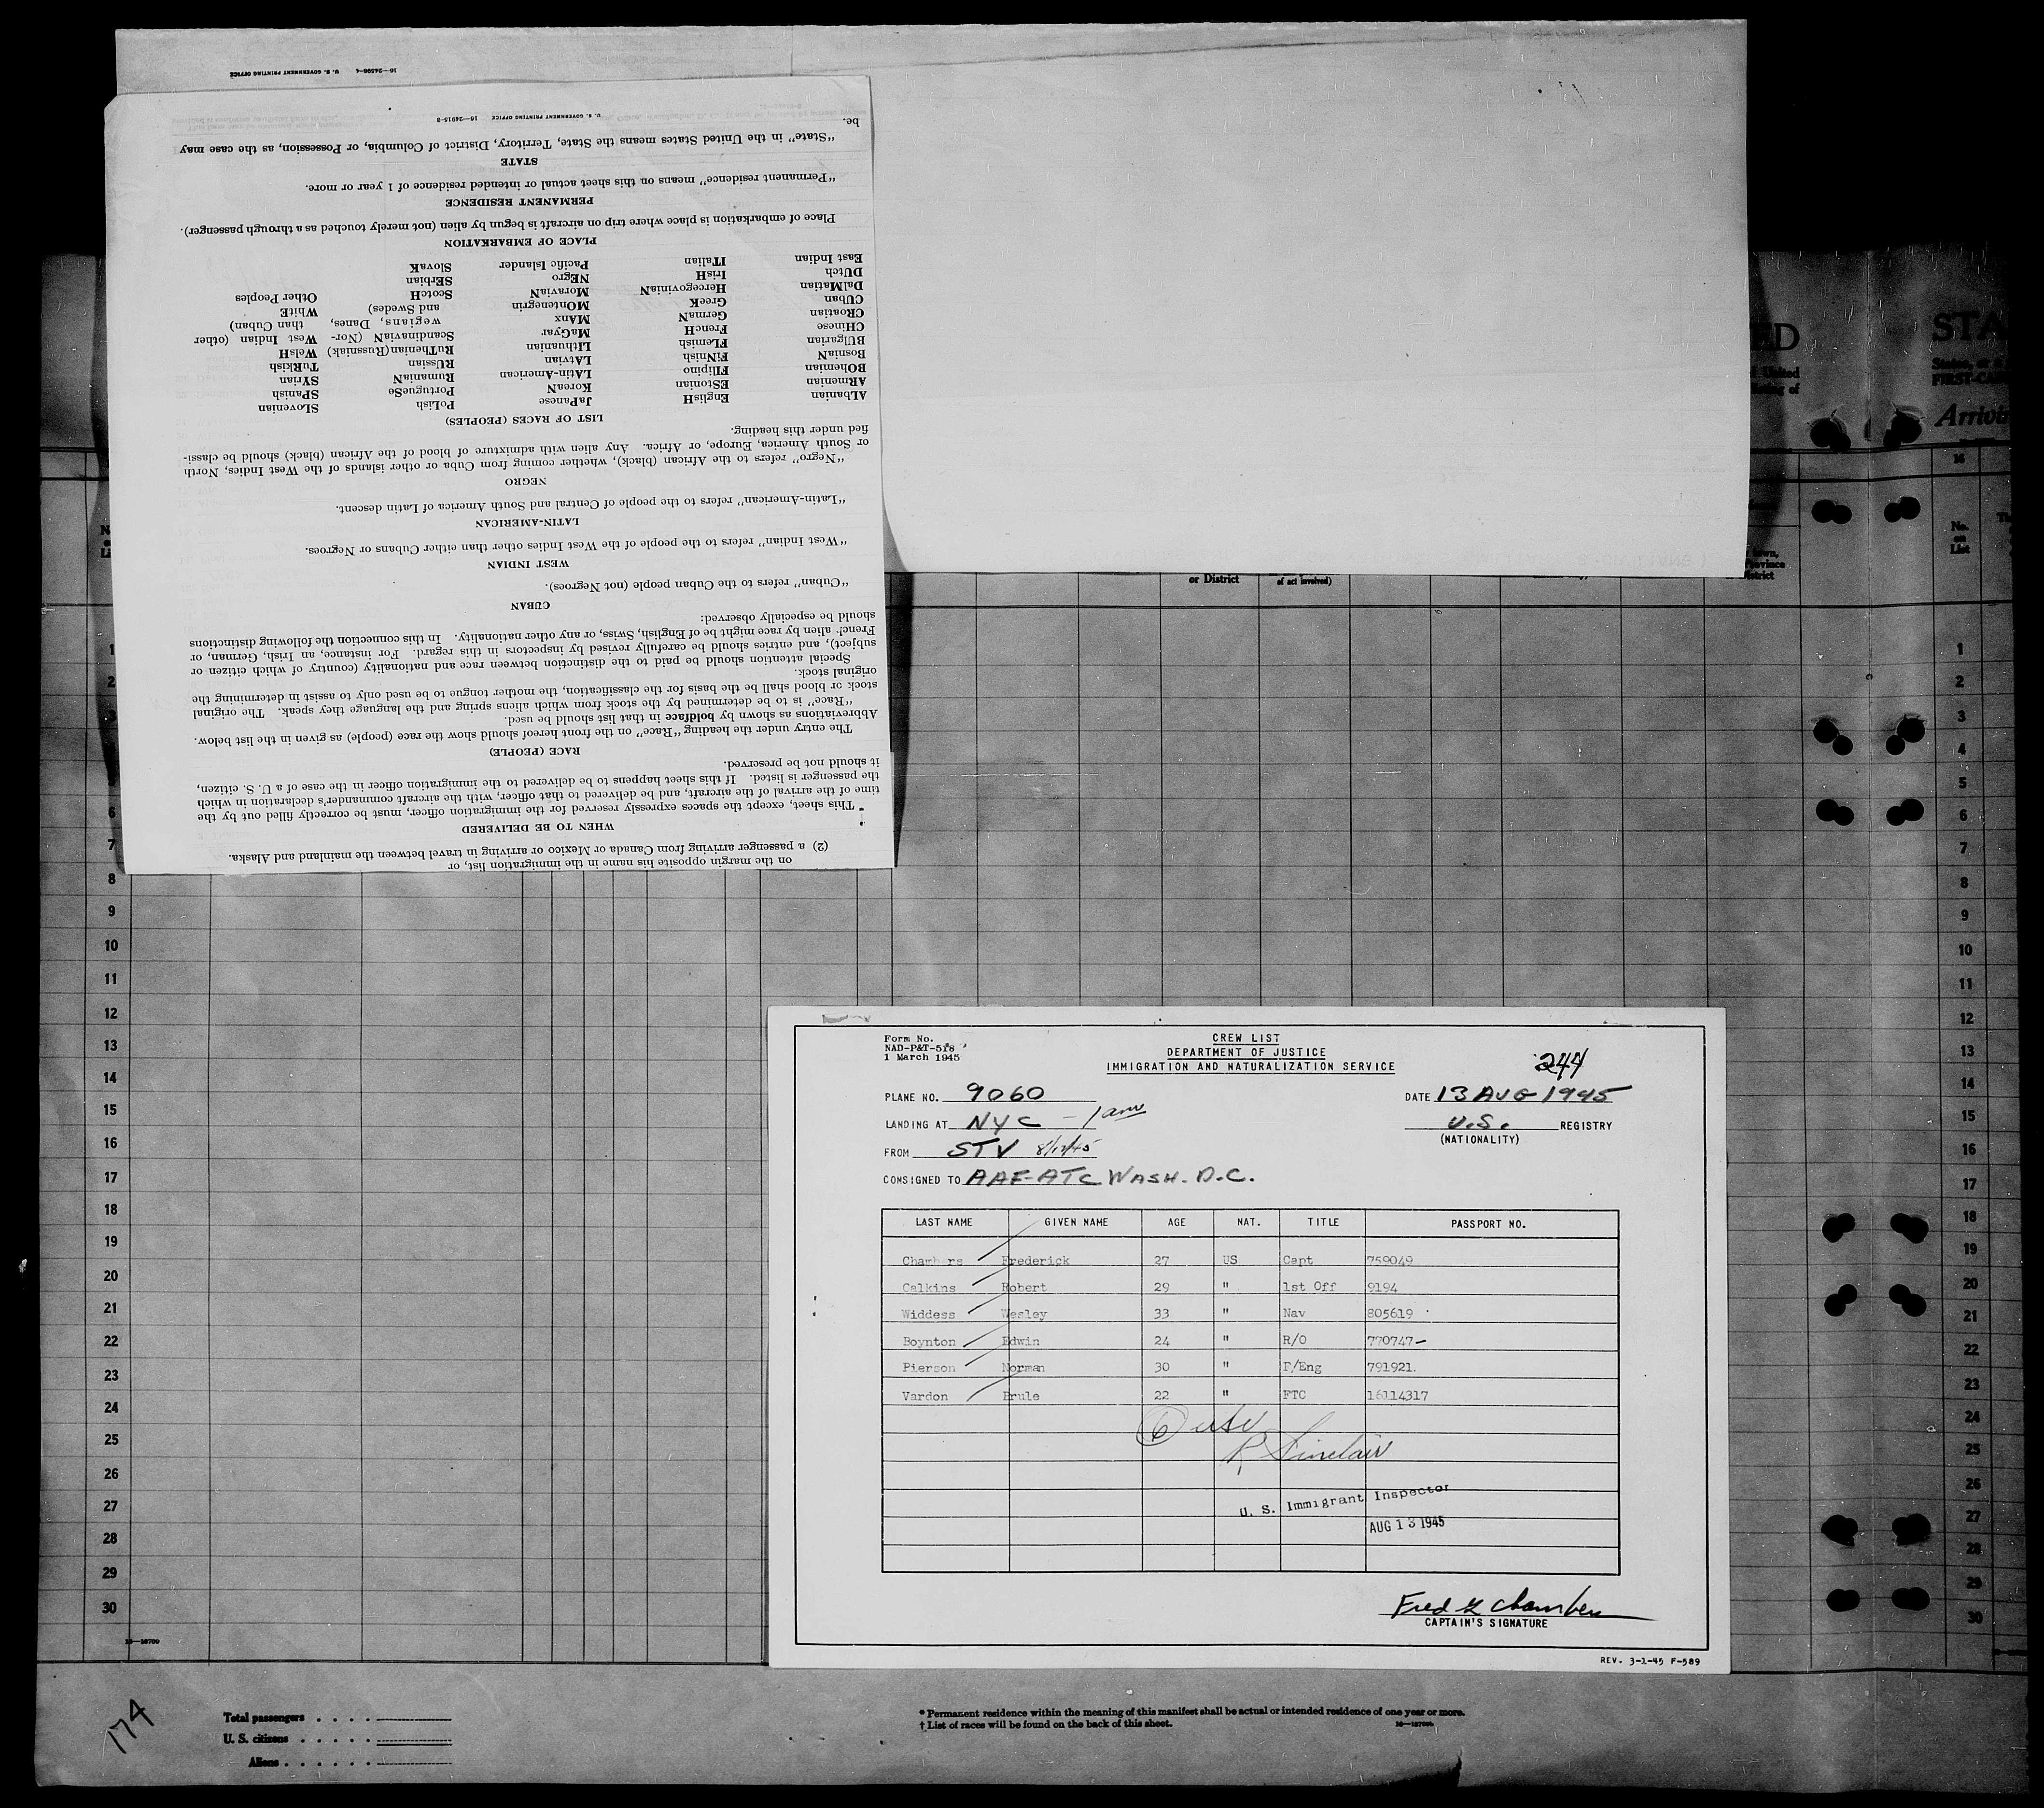 16—24598-4 U. S. GOVERNMENT PRINTING OFFICE
on the margin opposite his name in the immigration list, or
(2) a passenger arriving from Canada or Mexico or arriving in travel between the mainland and Alaska.
WHEN TO BE DELIVERED
This sheet, except the spaces expressly reserved for the immigration officer, must be correctly filled out by the
time of the arrival of the aircraft, and be delivered to that officer, with the aircraft commander's declaration in which
the passenger is listed. If this sheet happens to be delivered to the immigration officer in the case of a U. S. citizen,
it should not be preserved.
RACE (PEOPLE)
The entry under the heading "Race" on the front hereof should show the race (people) as given in the list below.
Abbreviations as shown by boldface in that list should be used.
"Race" is to be determined by the stock from which aliens spring and the language they speak. The original
stock or blood shall be the basis for the classification, the mother tongue to be used only to assist in determining the
original stock.
Special attention should be paid to the distinction between race and nationality (country of which citizen or
subject), and entries should be carefully revised by inspectors in this regard. For instance, an Irish, German, or
French alien by race might be of English, Swiss, or any other nationality. In this connection the following distinctions
should be especially observed:
CUBAN
"Cuban" refers to the Cuban people (not Negroes).
WEST INDIAN
"West Indian" refers to the people of the West Indies other than either Cubans or Negroes.
LATIN-AMERICAN
"Latin-American" refers to the people of Central and South America of Latin descent.
NEGRO
"Negro" refers to the African (black), whether coming from Cuba or other islands of the West Indies, North
or South America, Europe, or Africa. Any alien with admixture of blood of the African (black) should be classi-
fied under this heading.
LIST OF RACES (PEOPLES)
ALbanian EnglisH JaPanese PoLish SLovenian
ARmenian EStonian KoreaN PortugueSe SPanish
BOhemian FIlipino LAtin-American RumaniaN SYrian
BosniaN FiNnish LAtvian RUssian TuRKish
BUlgarian FLemish LIthuanian RuThenian (Russniak) WelsH
CHinese FrencH MaGyar ScandinaviaN (Nor- West Indian (other
CRoatian GermaN MAnx wegians, Danes, than Cuban)
CUban GreeK MOntenegrin and Swedes) WhitE
DalMatian HercegoviniaN MoraviaN ScotcH Other Peoples
DUtch IrisH NEgro SErbian
East Indian ITalian Pacific Islander SlovaK
PLACE OF EMBARKATION
Place of embarkation is place where trip on aircraft is begun by alien (not merely touched as a through passenger).
PERMANENT RESIDENCE
"Permanent residence" means on this sheet actual or intended residence of 1 year or more.
STATE
"State" in the United States means the State, Territory, District of Columbia, or Possession, as the case may
be.
U. S. GOVERNMENT PRINTING OFFICE 16—24915-2
ED
United
of
STA
States, or a
FIRST-CA
Arrivi
16
No.
on
List
or District
of act involved)
town,
Province
District
1
2
3
4
5
6
7
8
9
10
11
12
13
14
15
16
17
18
19
20
21
22
23
24
25
26
27
28
29
30
1
2
3
4
5
6
7
8
9
10
11
12
13
14
15
16
17
18
19
20
21
22
23
24
25
26
27
28
29
30
Form No.
NAD-P&T-518
1 March 1945
CREW LIST
DEPARTMENT OF JUSTICE
IMMIGRATION AND NATURALIZATION SERVICE
244
PLANE NO. 9060
DATE 13 AUG 1945
LANDING AT NYC - 1 am
U.S. REGISTRY
(NATIONALITY)
FROM STV 8/12/45
CONSIGNED TO AAF-ATC WASH. D.C.
LAST NAME GIVEN NAME AGE NAT. TITLE PASSPORT NO.
Chambers Frederick 27 US Capt 759049
Calkins Robert 29 " 1st Off 9194
Widdess Wesley 33 " Nav 805619
Boynton Edwin 24 " R/O 770747
Pierson Norman 30 " F/Eng 791921.
Vardon Brule 22 " FTC 16114317
6 usc
R Sinclair
U. S. Immigrant Inspector
AUG 13 1945
Fred K Chambers
CAPTAIN'S SIGNATURE
REV. 3-1-45 F-589
16—18709
174
Total passengers
U. S. citizens
Aliens
* Permanent residence within the meaning of this manifest shall be actual or intended residence of one year or more.
† List of races will be found on the back of this sheet.